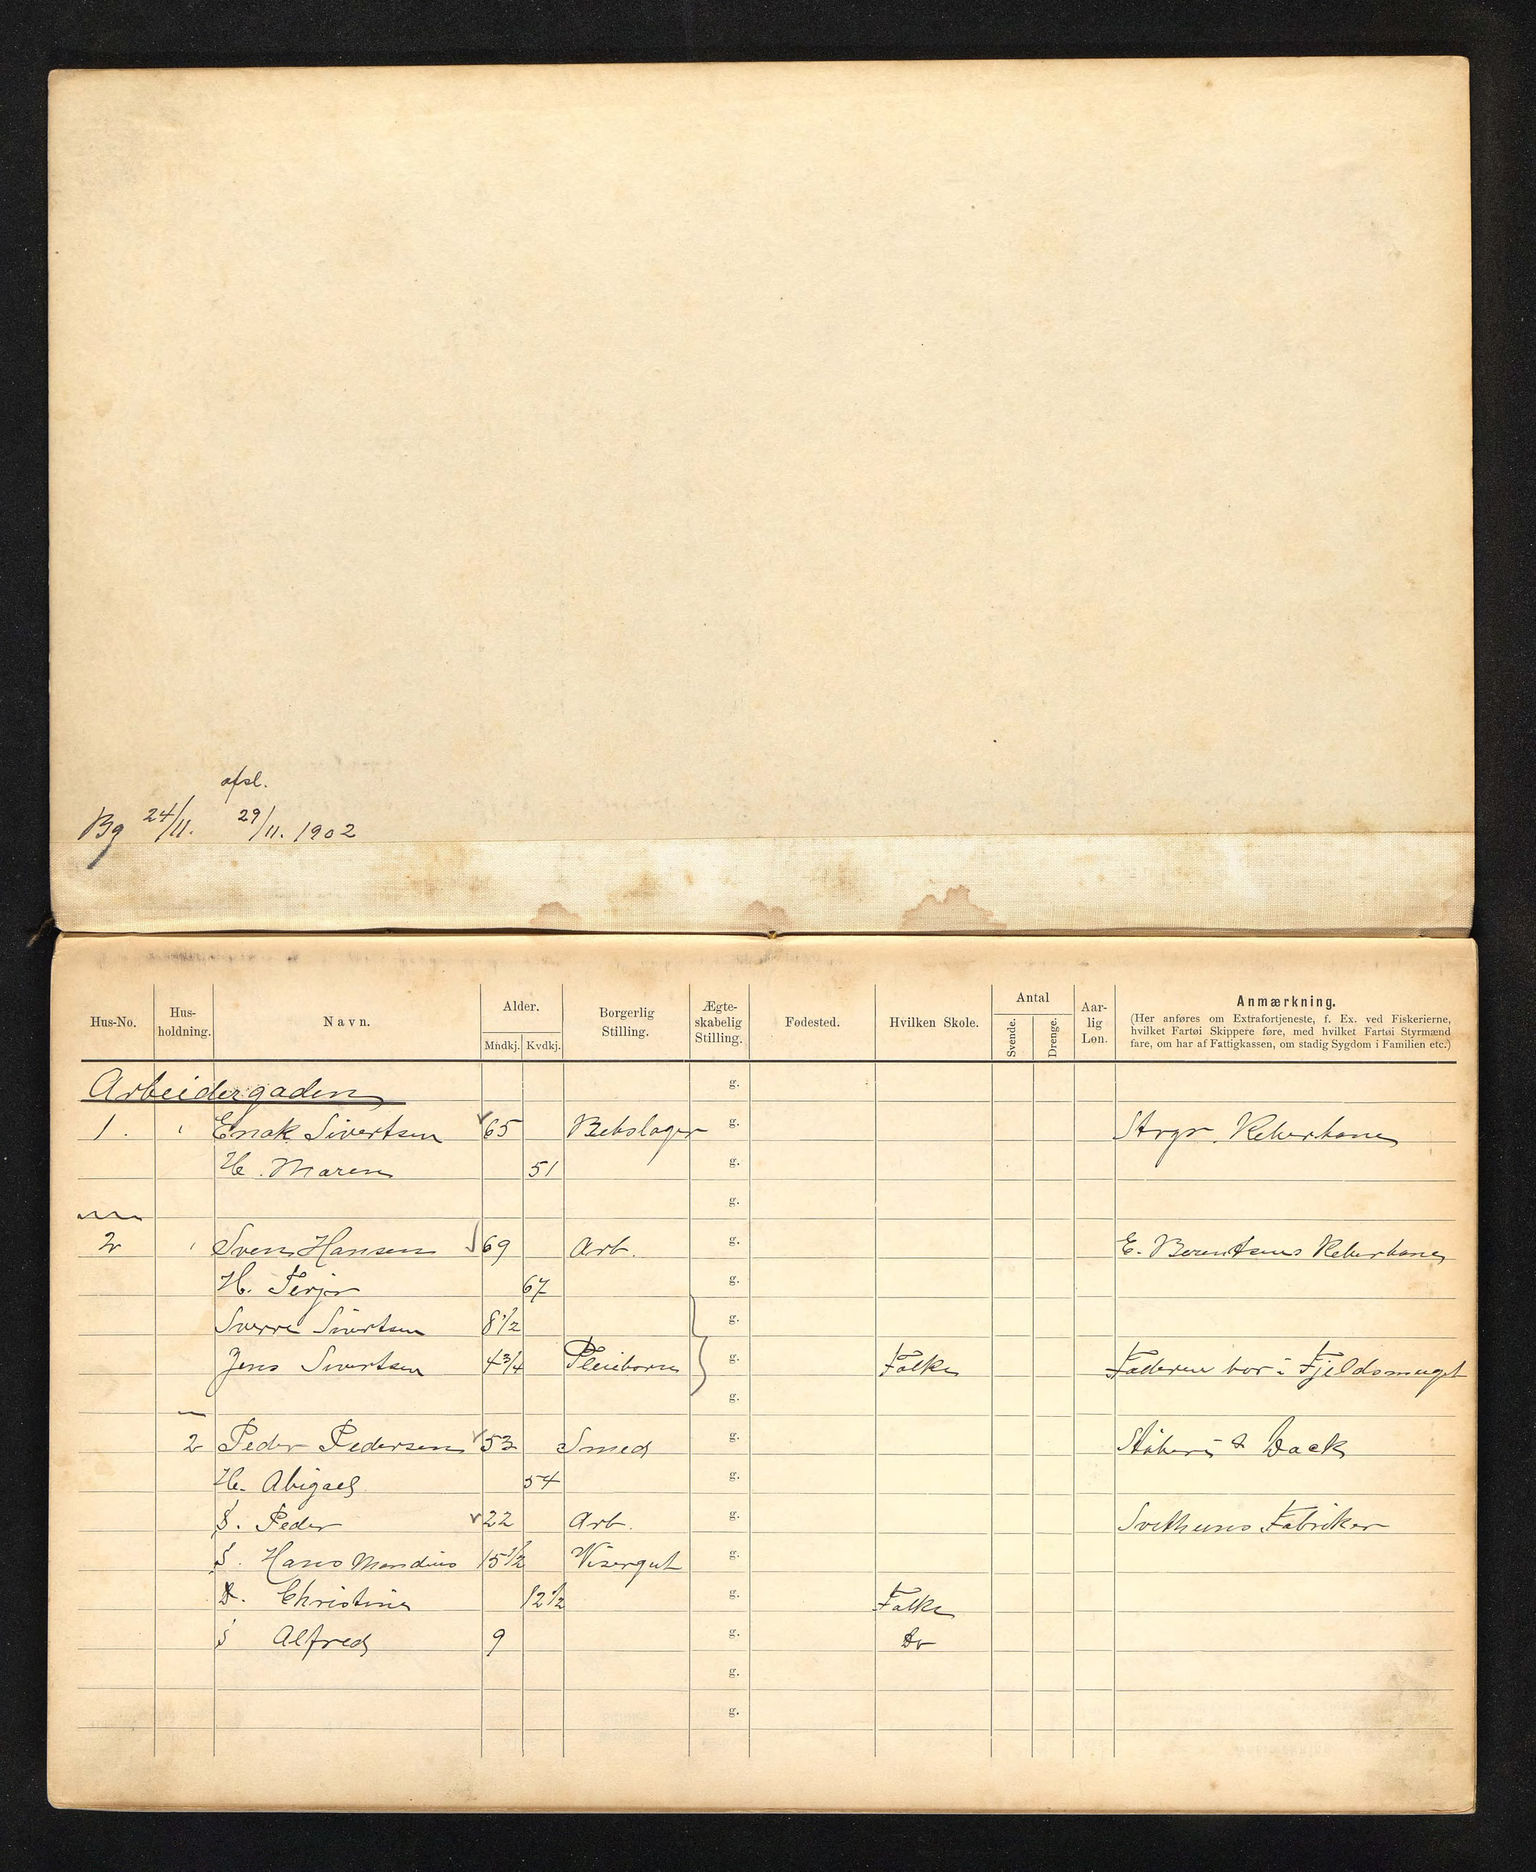 afsl.
Bg 24/11. 29/11. 1902
Hus-No.
Hus-holdning.
Navn.
Alder.
Mndkj.
Kvdkj.
Borgerlig Stilling.
Ægte-skabelig Stilling.
Fødested.
Hvilken Skole.
Antal
Svende.
Drenge.
Aar-lig Løn.
Anmærkning.
(Her anføres om Extrafortjeneste, f. Ex. ved Fiskerierne,
hvilket Fartøi Skippere føre, med hvilket Fartøi Styrmænd
fare, om har af Fattigkassen, om stadig Sygdom i Familien etc.)
Arbeidergaden g.
1. 1 Enok Sivertsen 65 Rebslager g. Strgs. Reberbane
H. Maren 51 g.
g.
2 1 Sven Hansen 69 Arb. g. E. Berentsens Reberbane
H. Terjer 67 g.
Sverre Sivertsen 8 1/2 g.
Jens Sivertsen 4 3/4 Pleiebørn g. Folke Faderen bor i Fjeldsmuget
g.
2 Peder Pedersen 53 Smed g. Støberi & Dock
H. Abigael 54 g.
S. Peder 22 Arb. g. Svithuns Fabriker
S. Hans Mandius 15 1/2 Visergut g.
D. Christine 12 1/2 g. Folke
S Alfred 9 g. Do
g.
g.